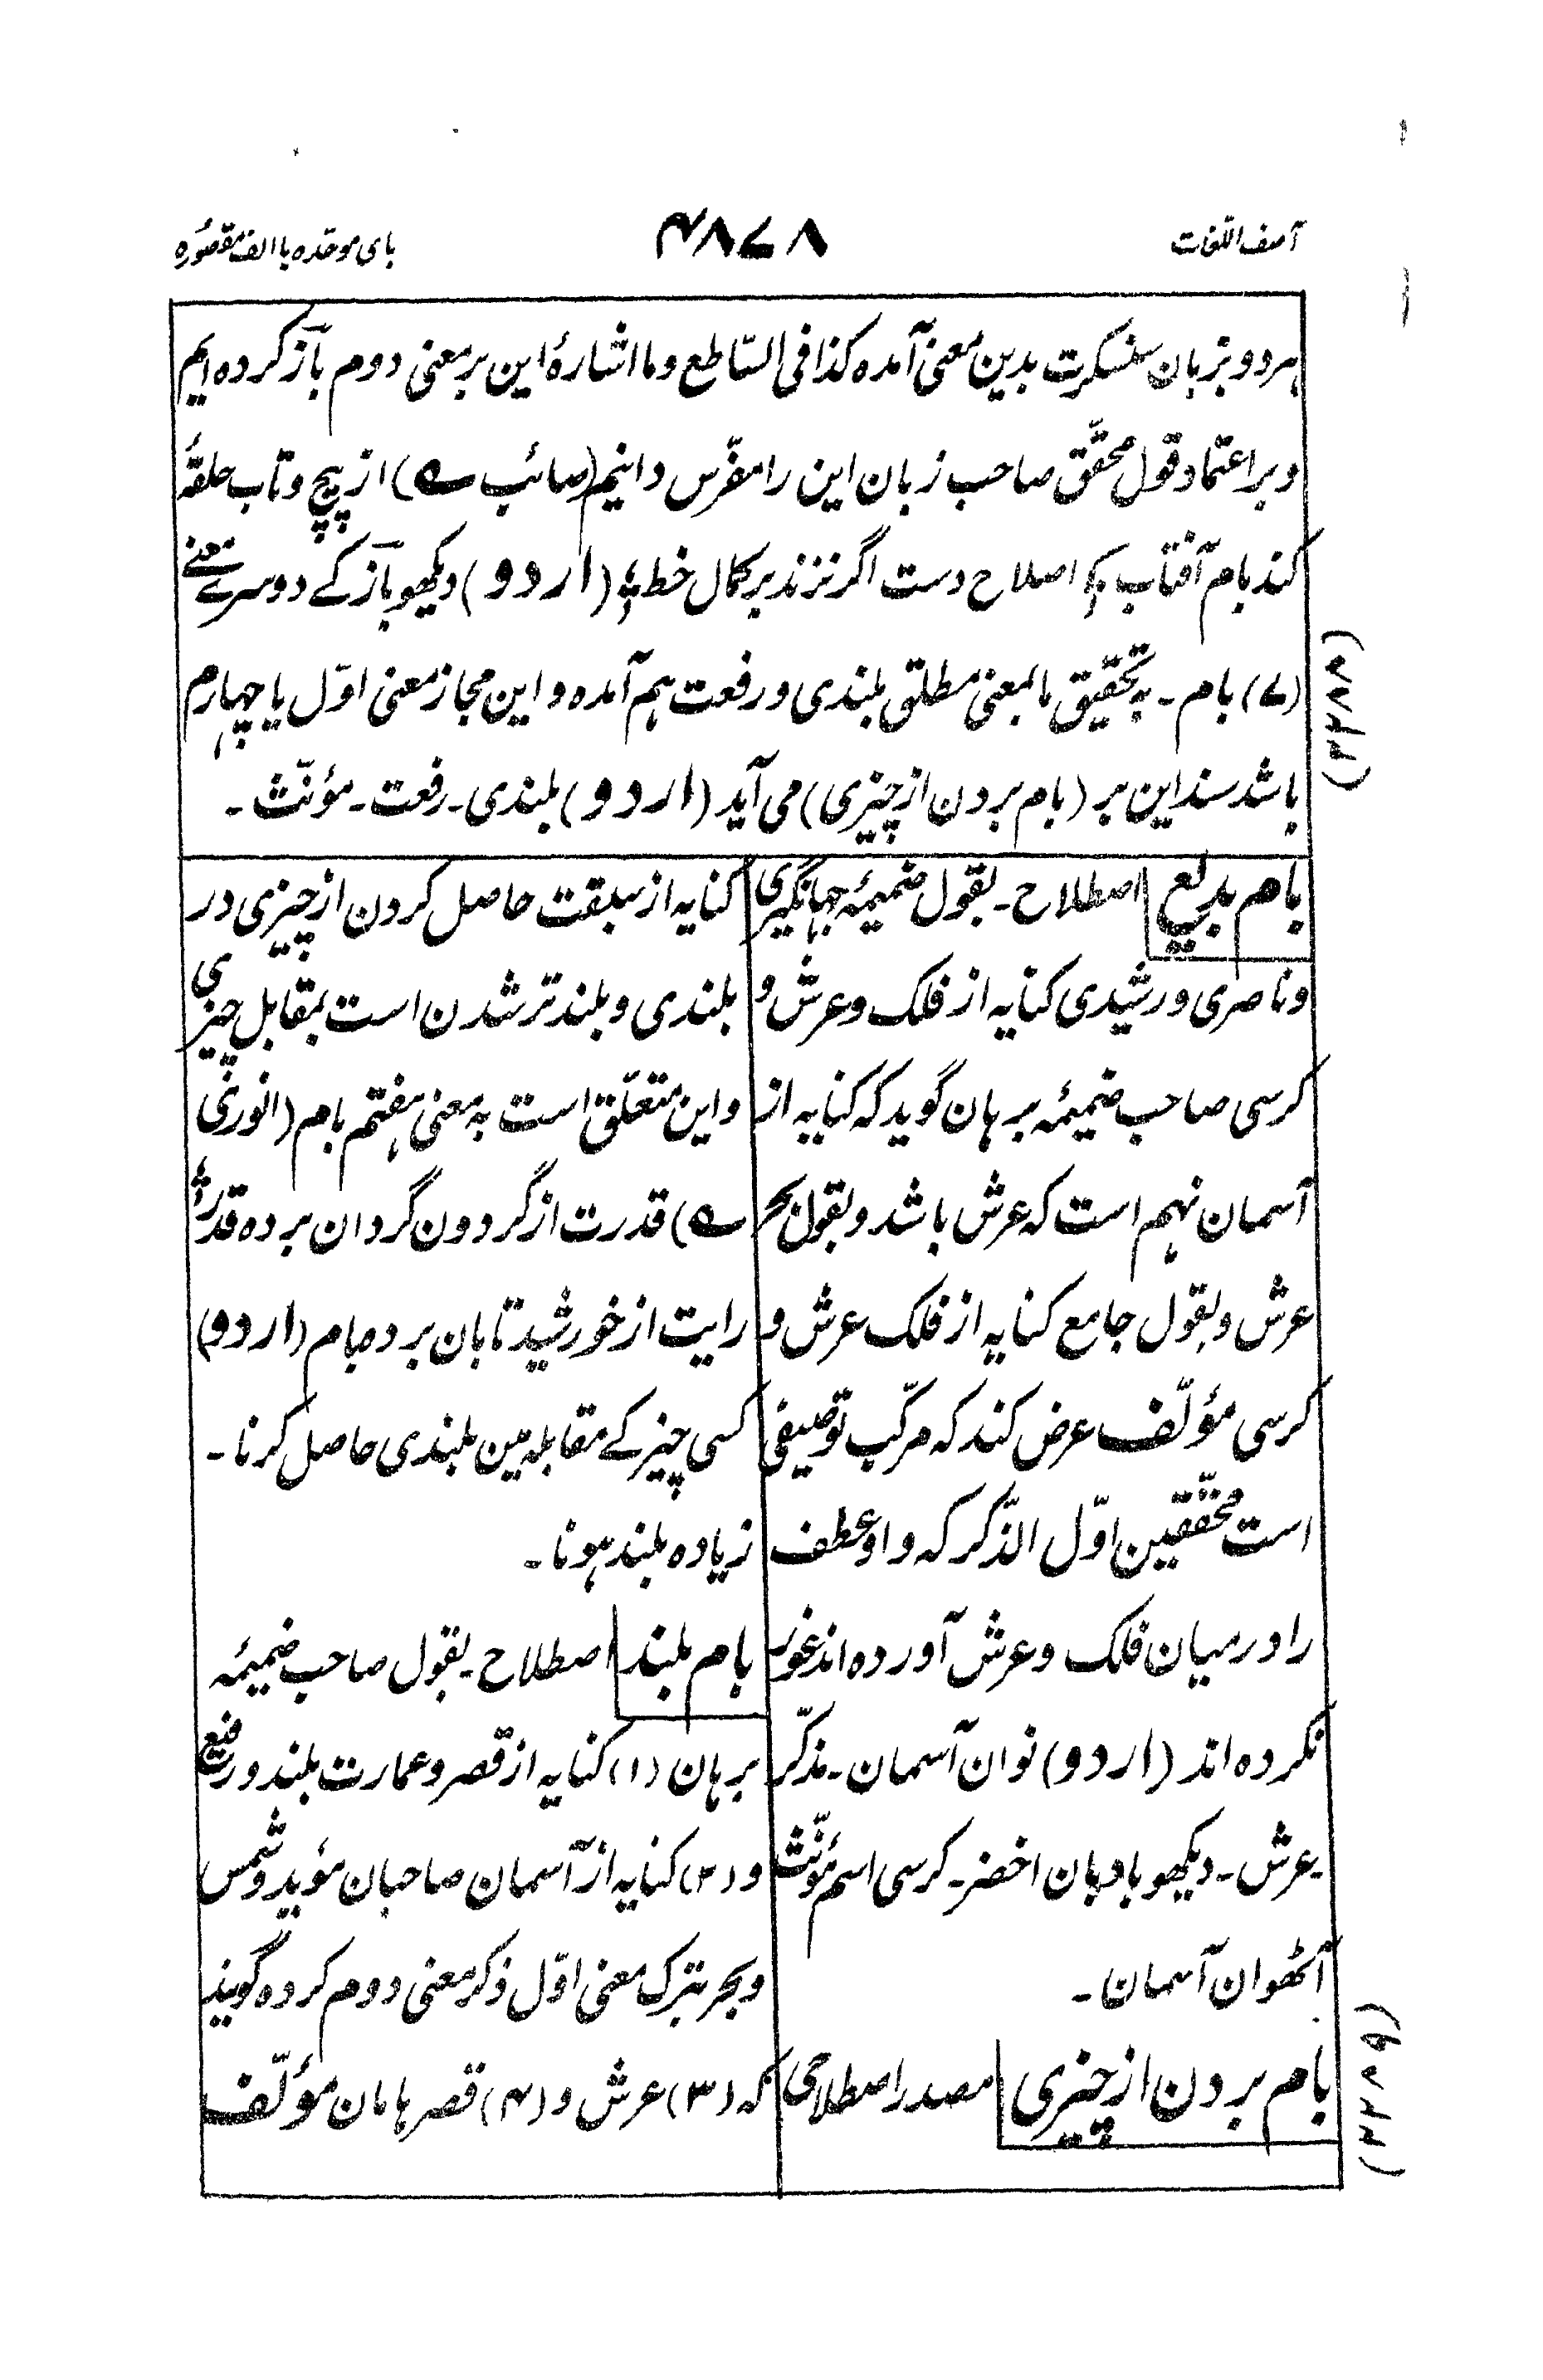 آصف اللغات
۴۸۷۸
بای موحّدہ با الف مقصورہ
ہر دو بزبان سنسکرت بدین معنی آمدہ کذا فی السّاطع و ما اشارۂ این بر معنی دوم بآز کردہ ایم
و بر اعتماد قول محقّق صاحب زبان این را مفرّس دانیم (صائب ؎) از پیچ و تاب حلقۂ
کند بام آفتاب ؛ اصلاح دست اگر نزند بر کمال خط ؛؛ (اردو) دیکھو بآز کے دوسرے معنے
(۷) بام ۔ بہ تحقیق ما بمعنی مطلق بلندی و رفعت ہم آمدہ و این مجاز معنی اوّل یا چہارم
باشد سند این بر (بام بردن از چیزی) می آید (اردو) بلندی ۔ رفعت ۔ مؤنّث ۔
(۲۲۸۸)
بام بدیع اصطلاح ۔ بقول ضمیمۂ جہانگیری
و ناصری و رشیدی کنایہ از فلک و عرش و
کرسی صاحب ضمیمۂ برہان گوید کہ کنایہ از
آسمان نہم است کہ عرش باشد و بقول بحر
عرش و بقول جامع کنایہ از فلک عرش و
کرسی مؤلّف عرض کند کہ مرکّب توصیفی
است محقّقین اوّل الذّکر کہ واو عطف
را درمیان فلک و عرش آوردہ اند غور
نکردہ اند (اردو) نوان آسمان ۔ مذکّر
۔ عرش ۔ دیکھو بادبان اخضر ۔ کرسی اسم مؤنّث
آٹھوان آسمان ۔
بام بردن از چیزی مصدر اصطلاحی
(۲۲۸۹)
کنایہ از سبقت حاصل کردن از چیزی در
بلندی و بلندتر شدن است بمقابل چیزی
و این متعلّق است بہ معنی ہفتم بام (انوری
؎) قدرت از گردون گردان بردہ قدر ؛
رایت از خورشید تابان بردہ بام (اردو)
کسی چیز کے مقابلہ مین بلندی حاصل کرنا ۔
زیادہ بلند ہونا ۔
بام بلند اصطلاح ۔ بقول صاحب ضمیمۂ
برہان (۱) کنایہ از قصر و عمارت بلند و رفیع
و (۲) کنایہ از آسمان صاحبان مؤید و شمس
و بحر بترک معنی اوّل ذکر معنی دوم کردہ گویند
کہ (۳) عرش و (۴) قصر ہامان مؤلّف